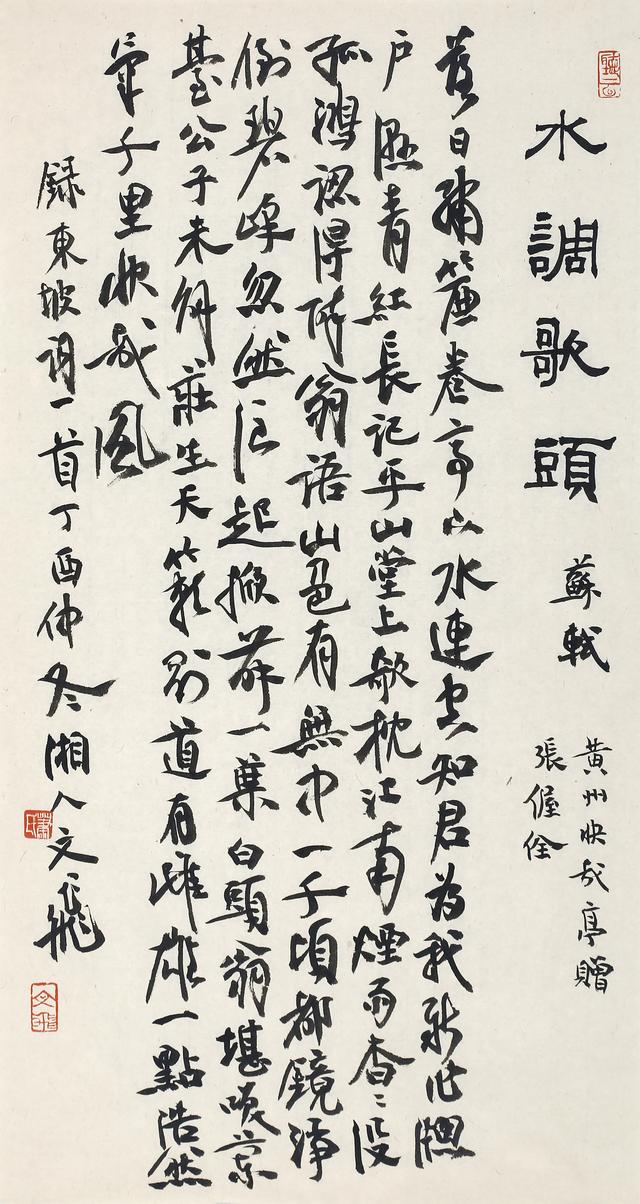 水調歌頭 蘇軾
黃州快哉亭贈
張偓佺
落日繡簾卷亭下水連空知君為我新作牕
戶濕青紅長記平山堂上欹枕江南煙雨杳〻沒
孤鴻認得醉翁語山色有無中一千頃都鏡淨
倒碧峰忽然浪起掀舞一葉白頭翁堪笑蘭
臺公子未解莊生天籟剛道有雌雄一點浩然
氣千里快哉風
錄東坡詞一首丁酉仲冬湘人文飛
文飛